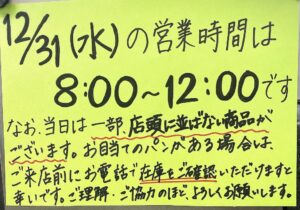 12/31(水)の営業時間は
8:00〜12:00です
なお、当日は一部、店頭に並ばない商品が
ございます。お目当てのパンがある場合は、
ご来店前にお電話で在庫をご確認いただけますと
幸いです。ご理解・ご協力のほど、よろしくお願いします。